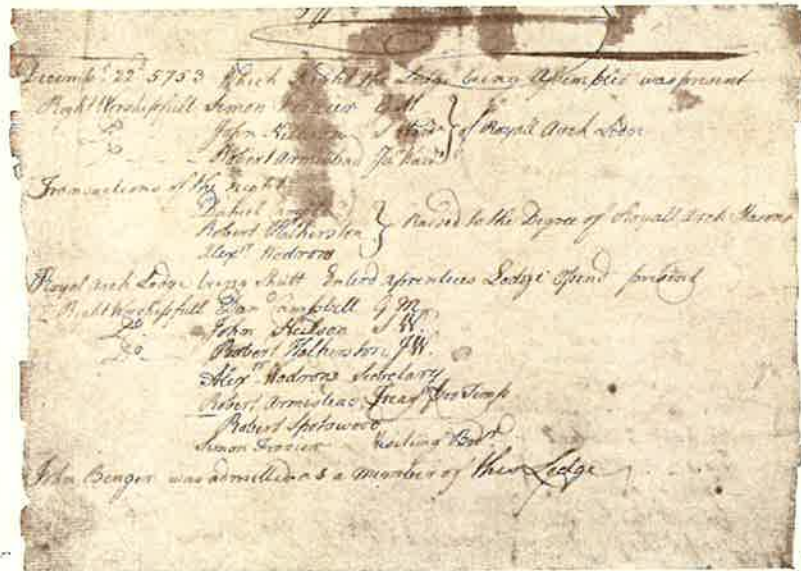 Decembr. 22d 5753 Which Night the Lodge being Assembled was present
Right Worshipfull Simon Frazier G M
Do John Neilson S Wardn } of Royall Arch Lodge
Do Robert Armistead Jr Wardn
Transactions of the night
Daniel Campbell
Robert Halkerston } Raised to the Degree of Royall Arch Masons
Alexr Wodrow
Royal arch Lodge being Shutt Enterd aprentices Lodge opend present
Right Worshipfull Dan Campbell G M
Do John Neilson S W
Do Robert Halkerston J W
Alexr Wodrow Secretary
Robert Armistead Treasr Pro Temps
Robert Spotswood
Simon Frazier Visiting Bror
John Benger was admitted as a member of this Lodge